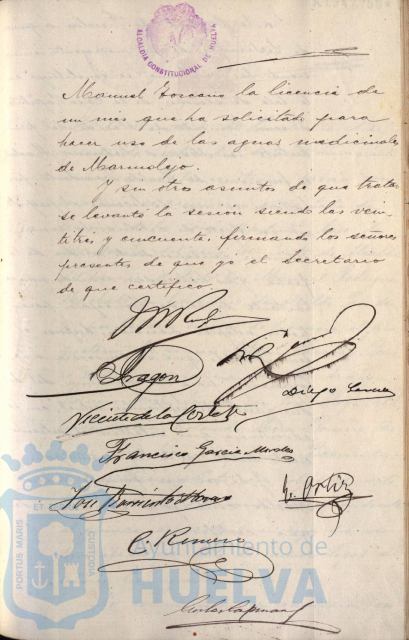 ALCALDÍA CONSTITUCIONAL DE HUELVA
Manuel Toscano la licencia de
un mes que ha solicitado para
hacer uso de las aguas medicinales
de Marmolejo.
Y sin otros asuntos de que tratar
se levantó la sesión siendo las vein
titrés y cincuenta, firmando los señores
presentes de que yo el Secretario
de que certifico.
Aragón
Diego
Vicente de la Corte
Francisco García Morales
José
M. Ortiz
C. Romero
PORTUS MARIS ET TERRAE CUSTODIA
Ayuntamiento de
HUELVA